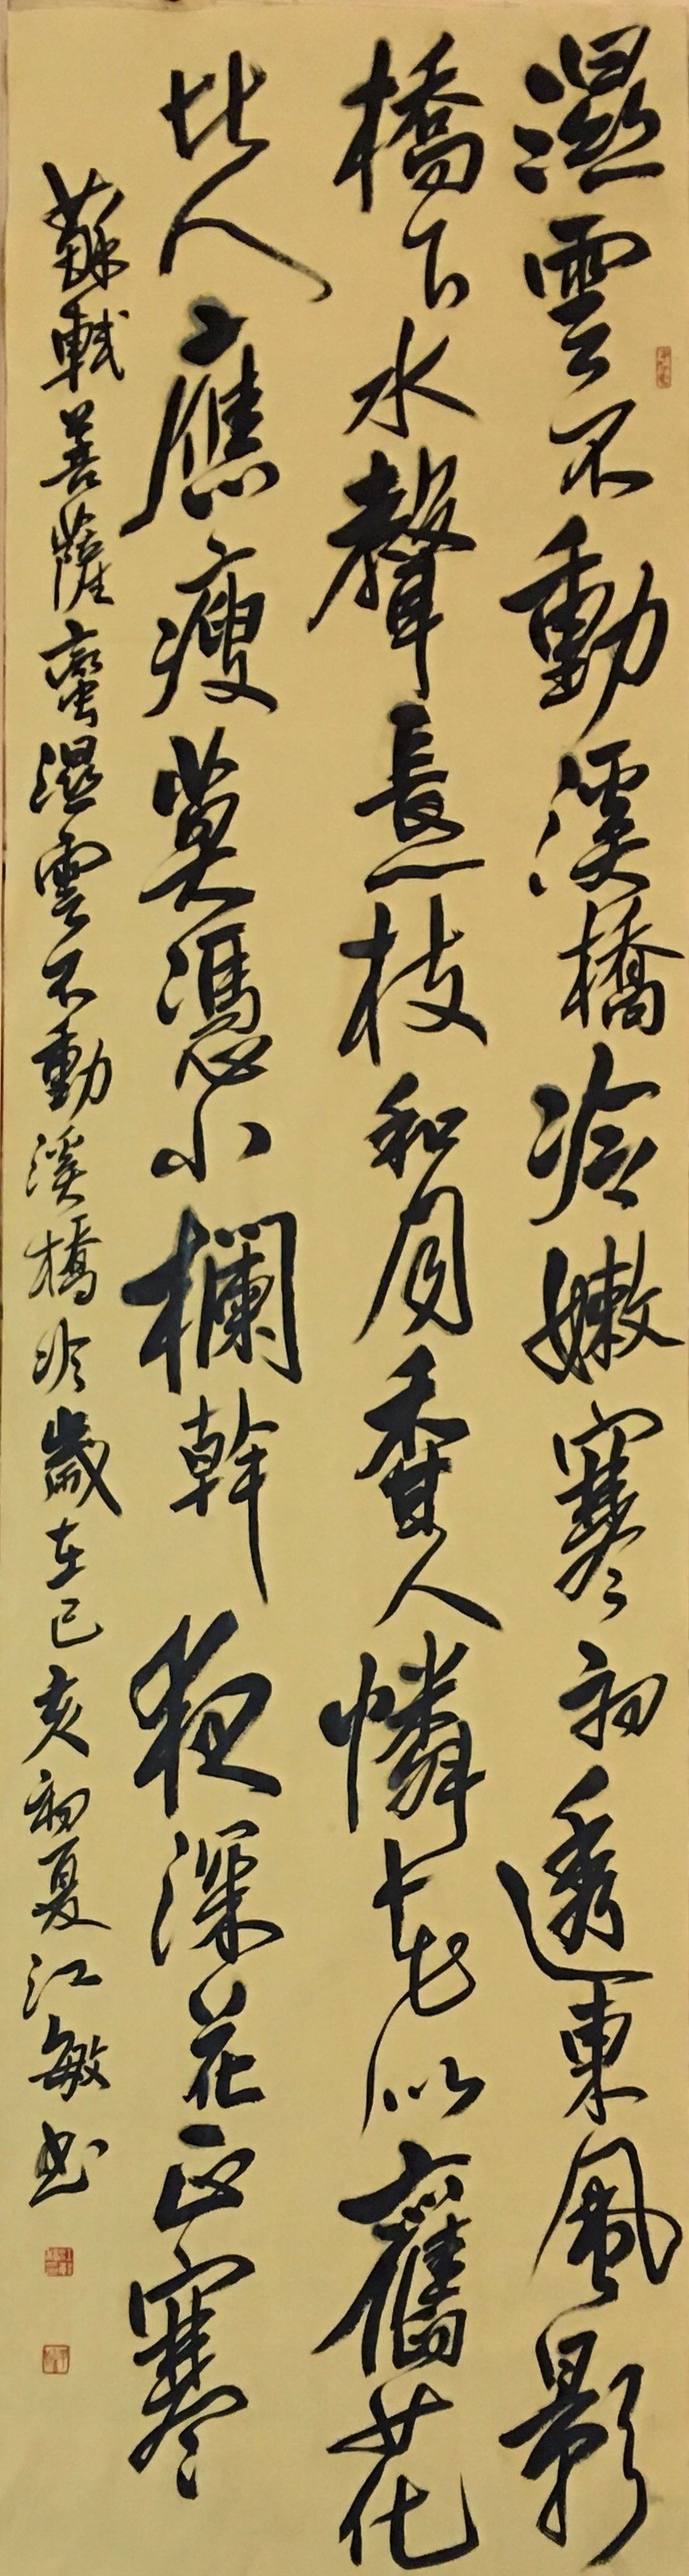 濕雲不動溪橋冷嫩寒初透東風影
橋下水聲長一枝和月香人憐花似舊花
比人應瘦莫憑小欄幹夜深花正寒
蘇軾菩薩蠻濕雲不動溪橋冷歲在己亥初夏江敏书